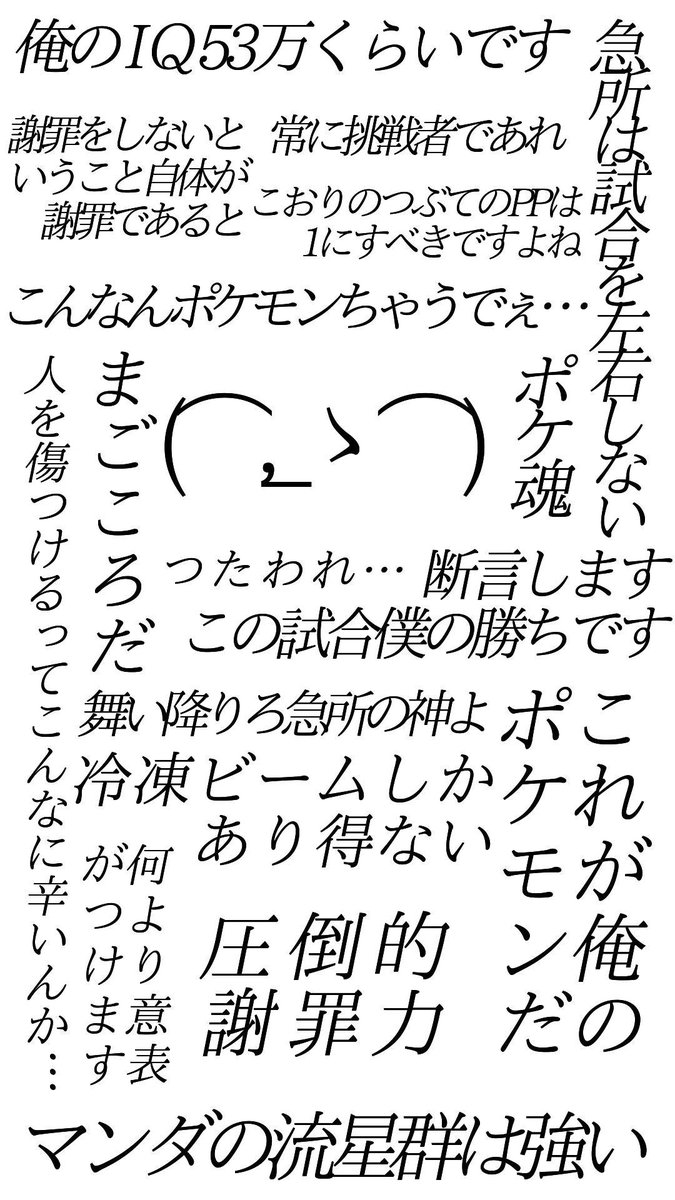 俺のIQ53万くらいです
急所は試合を左右しない
謝罪をしないと
いうこと自体が
謝罪であると
常に挑戦者であれ
こおりのつぶてのPPは
1にすべきですよね
こんなんポケモンちゃうでぇ…
人を傷つけるってこんなに辛いんか…
まごころだ
( ͡, _ ゝ ͡ )
ポケ魂
つたわれ…
断言します
この試合僕の勝ちです
舞い降りろ急所の神よ
冷凍ビームしか
あり得ない
これが俺の
ポケモンだ
何より意表
がつけます
圧倒的
謝罪力
マンダの流星群は強い